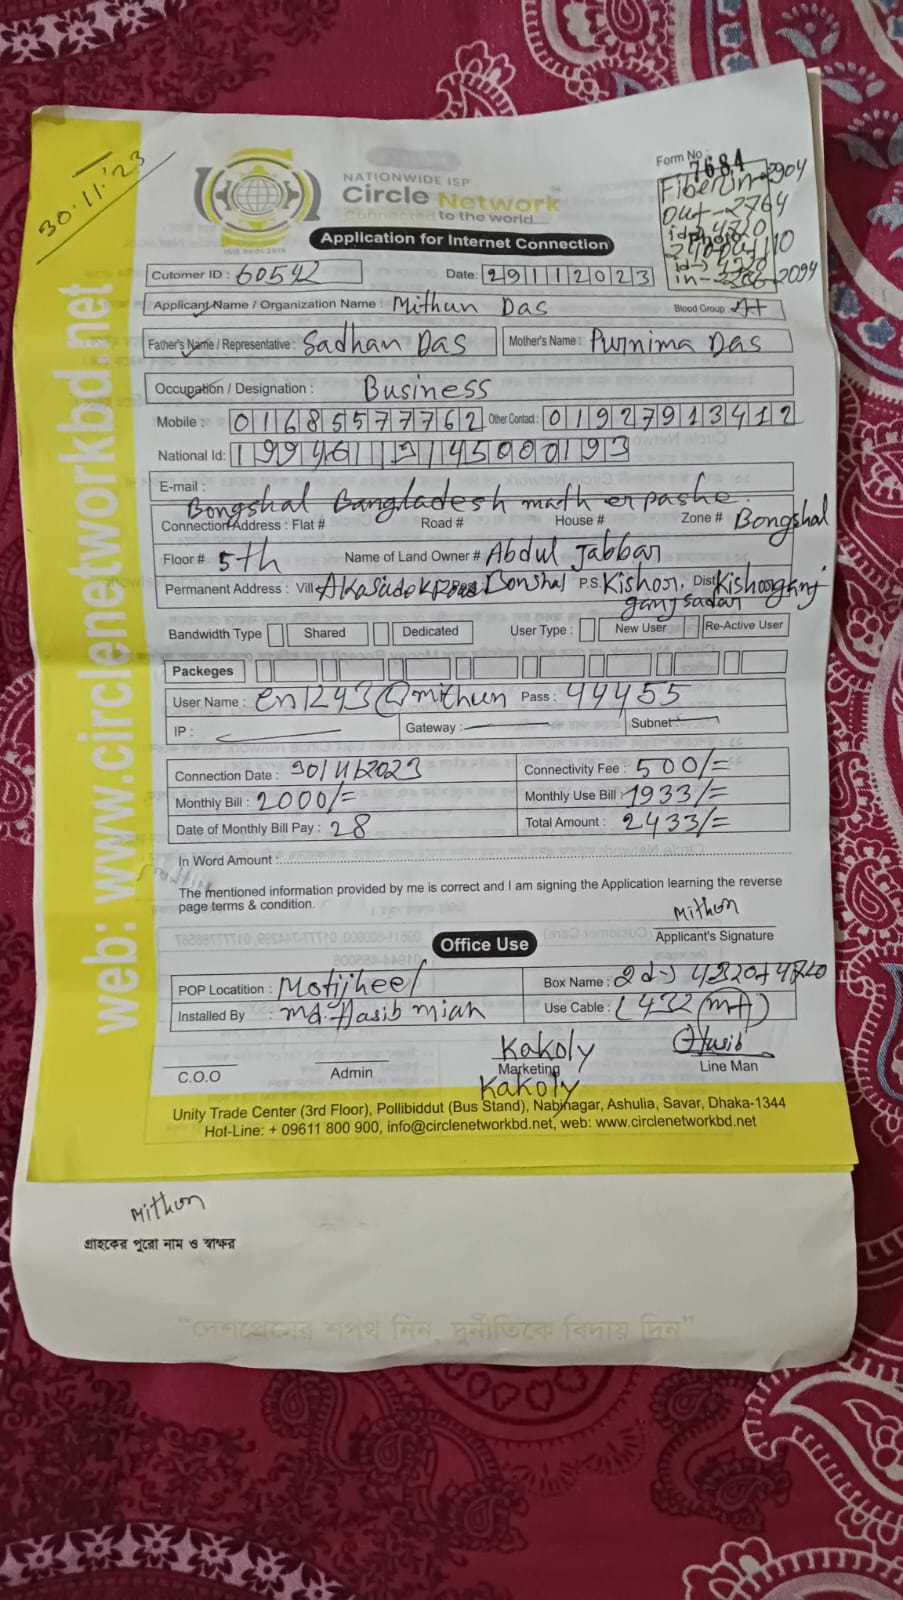 30.11.'23
NATIONWIDE ISP
Circle Network
Connected to the world...
ISO 9001:2015
Form No :
7684
Fiber In→2904
out→2764
Photo
Application for Internet Connection
Cutomer ID : 60542 Date: 29112023
Applicant Name / Organization Name : Mithun Das Blood Group : A+
Father's Name / Representative : Sadhan Das Mother's Name : Purnima Das
Occupation / Designation : Business
Mobile : 01685577762 Other Contact : 01927913412
National Id:
E-mail :
Bongshal Bangladesh math er pashe.
Connection Address : Flat # Road # House # Zone # Bongshal
Floor # 5th Name of Land Owner # Abdul Jabbar
Permanent Address : Vill P.S. Kishor. Dist
ganj sadar
Bandwidth Type Shared Dedicated User Type : New User Re-Active User
Packeges
User Name : en1243@mithun Pass : 44455
IP : Gateway : Subnet:
Connection Date : 30/11/2023 Connectivity Fee : 500/=
Monthly Bill : 2000/= Monthly Use Bill : 1933/=
Date of Monthly Bill Pay : 28 Total Amount : 2433/=
In Word Amount :
The mentioned information provided by me is correct and I am signing the Application learning the reverse
page terms & condition.
Mithon
Applicant's Signature
Office Use
POP Locatition : Motijheel Box Name :
Installed By : Md. Hasib miah Use Cable :
Kakoly Hasib
C.O.O Admin Marketing Line Man
Kakoly
Unity Trade Center (3rd Floor), Pollibiddut (Bus Stand), Nabinagar, Ashulia, Savar, Dhaka-1344
Hot-Line: + 09611 800 900, info@circlenetworkbd.net, web: www.circlenetworkbd.net
web: www.circlenetworkbd.net
Mithon
গ্রাহকের পুরো নাম ও স্বাক্ষর
"দেশপ্রেমের শপথ নিন, দুর্নীতিকে বিদায় দিন"